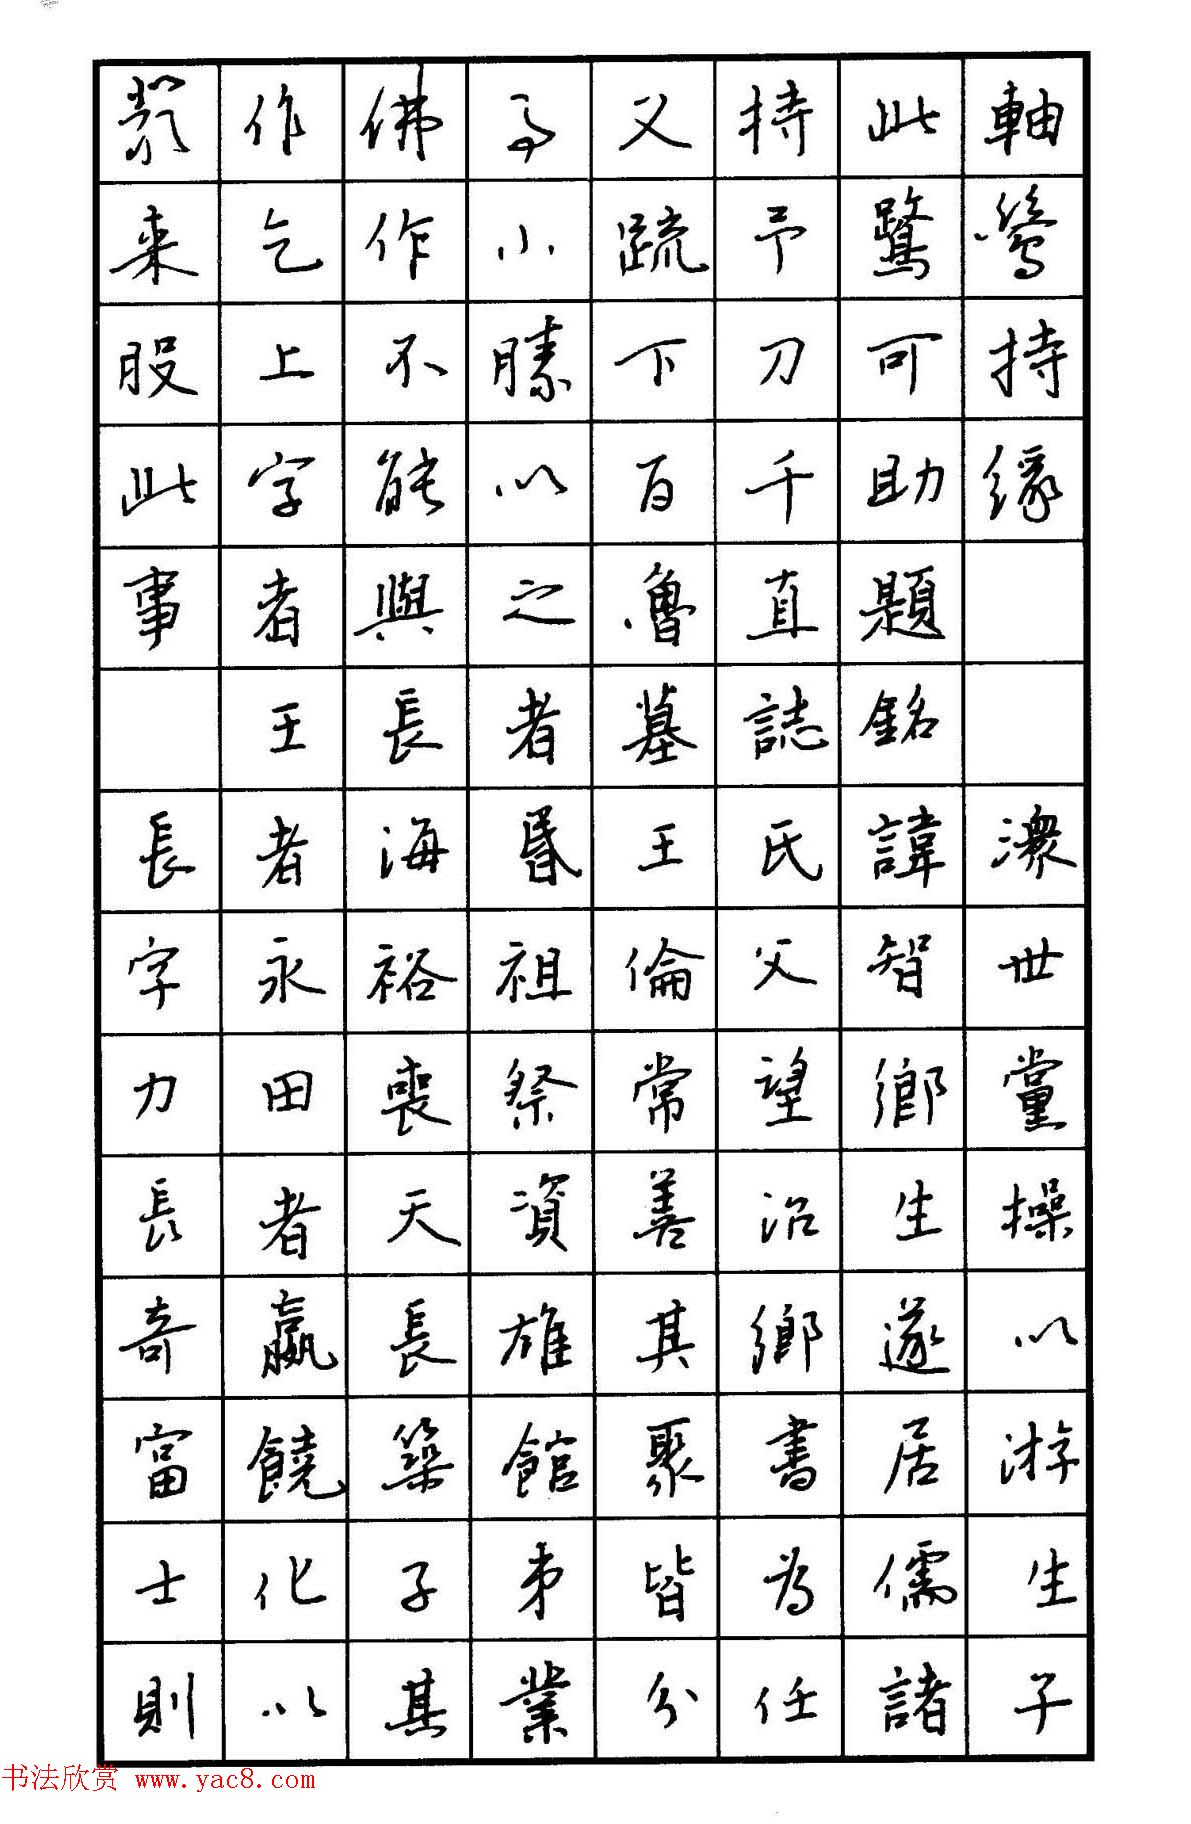 作佛事又持此軸
来乞作小疏予鷺鷥
股上不勝下刀可持
此字能以百千助缘
事者與之魯直題
王長者墓誌銘
長者海昬王氏諱潨
字永裕祖倫父智世
力田喪祭常望鄉黨
長者天資善治生操
奇贏長雄其鄉遂以
富饒築館聚書居游
士化子弟皆为儒生
則以其業分任諸子
书法欣赏 www.yac8.com